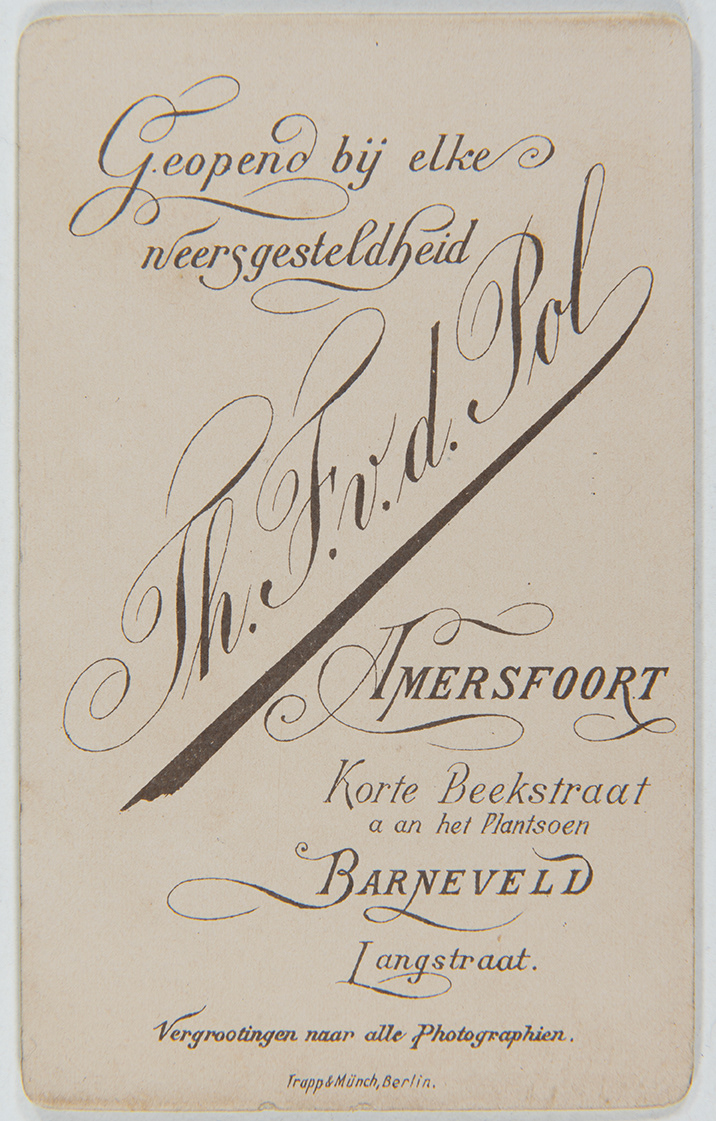 Geopend bij elke
weersgesteldheid
Th. F. v. d. Pol
AMERSFOORT
Korte Beekstraat
a an het Plantsoen
BARNEVELD
Langstraat.
Vergrootingen naar alle Photographien.
Trapp & Münch, Berlin.